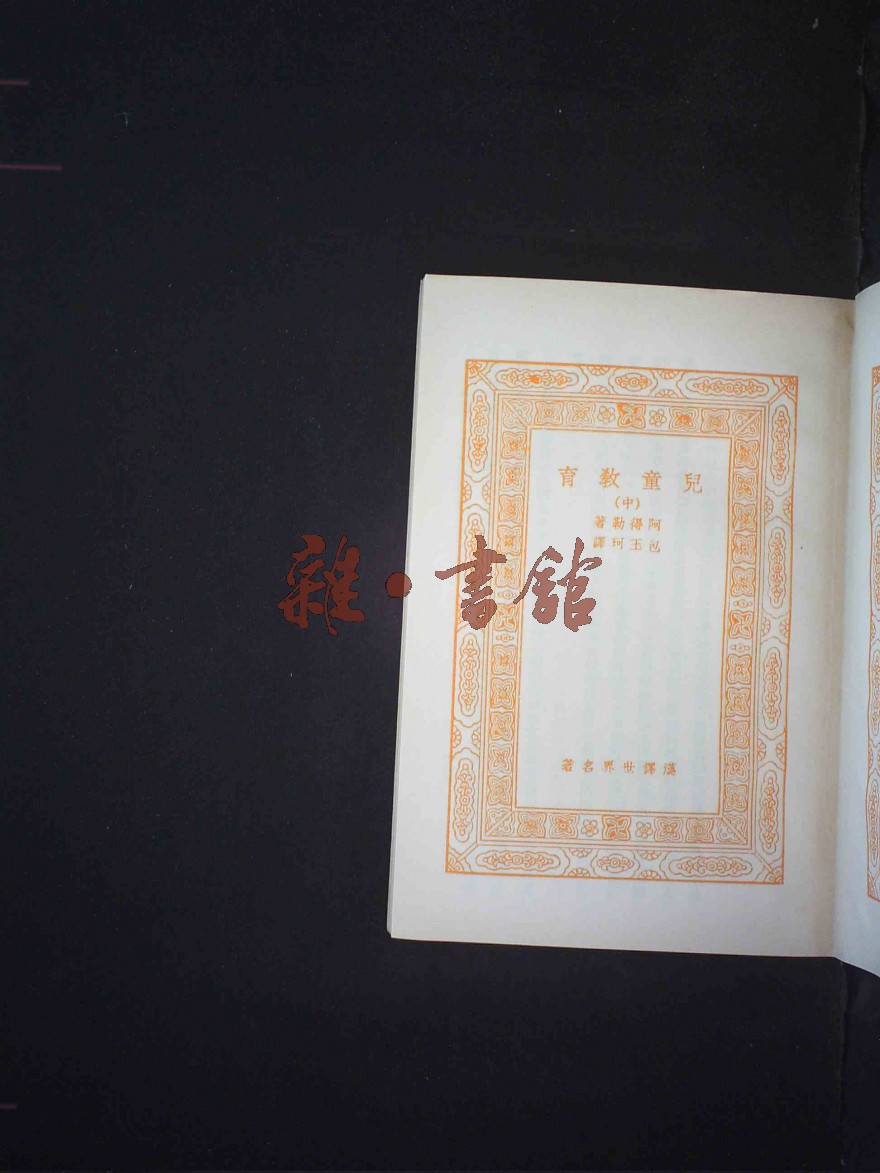 兒童教育
(中)
阿得勒著
包玉珂譯
漢譯世界名著
雜·書館